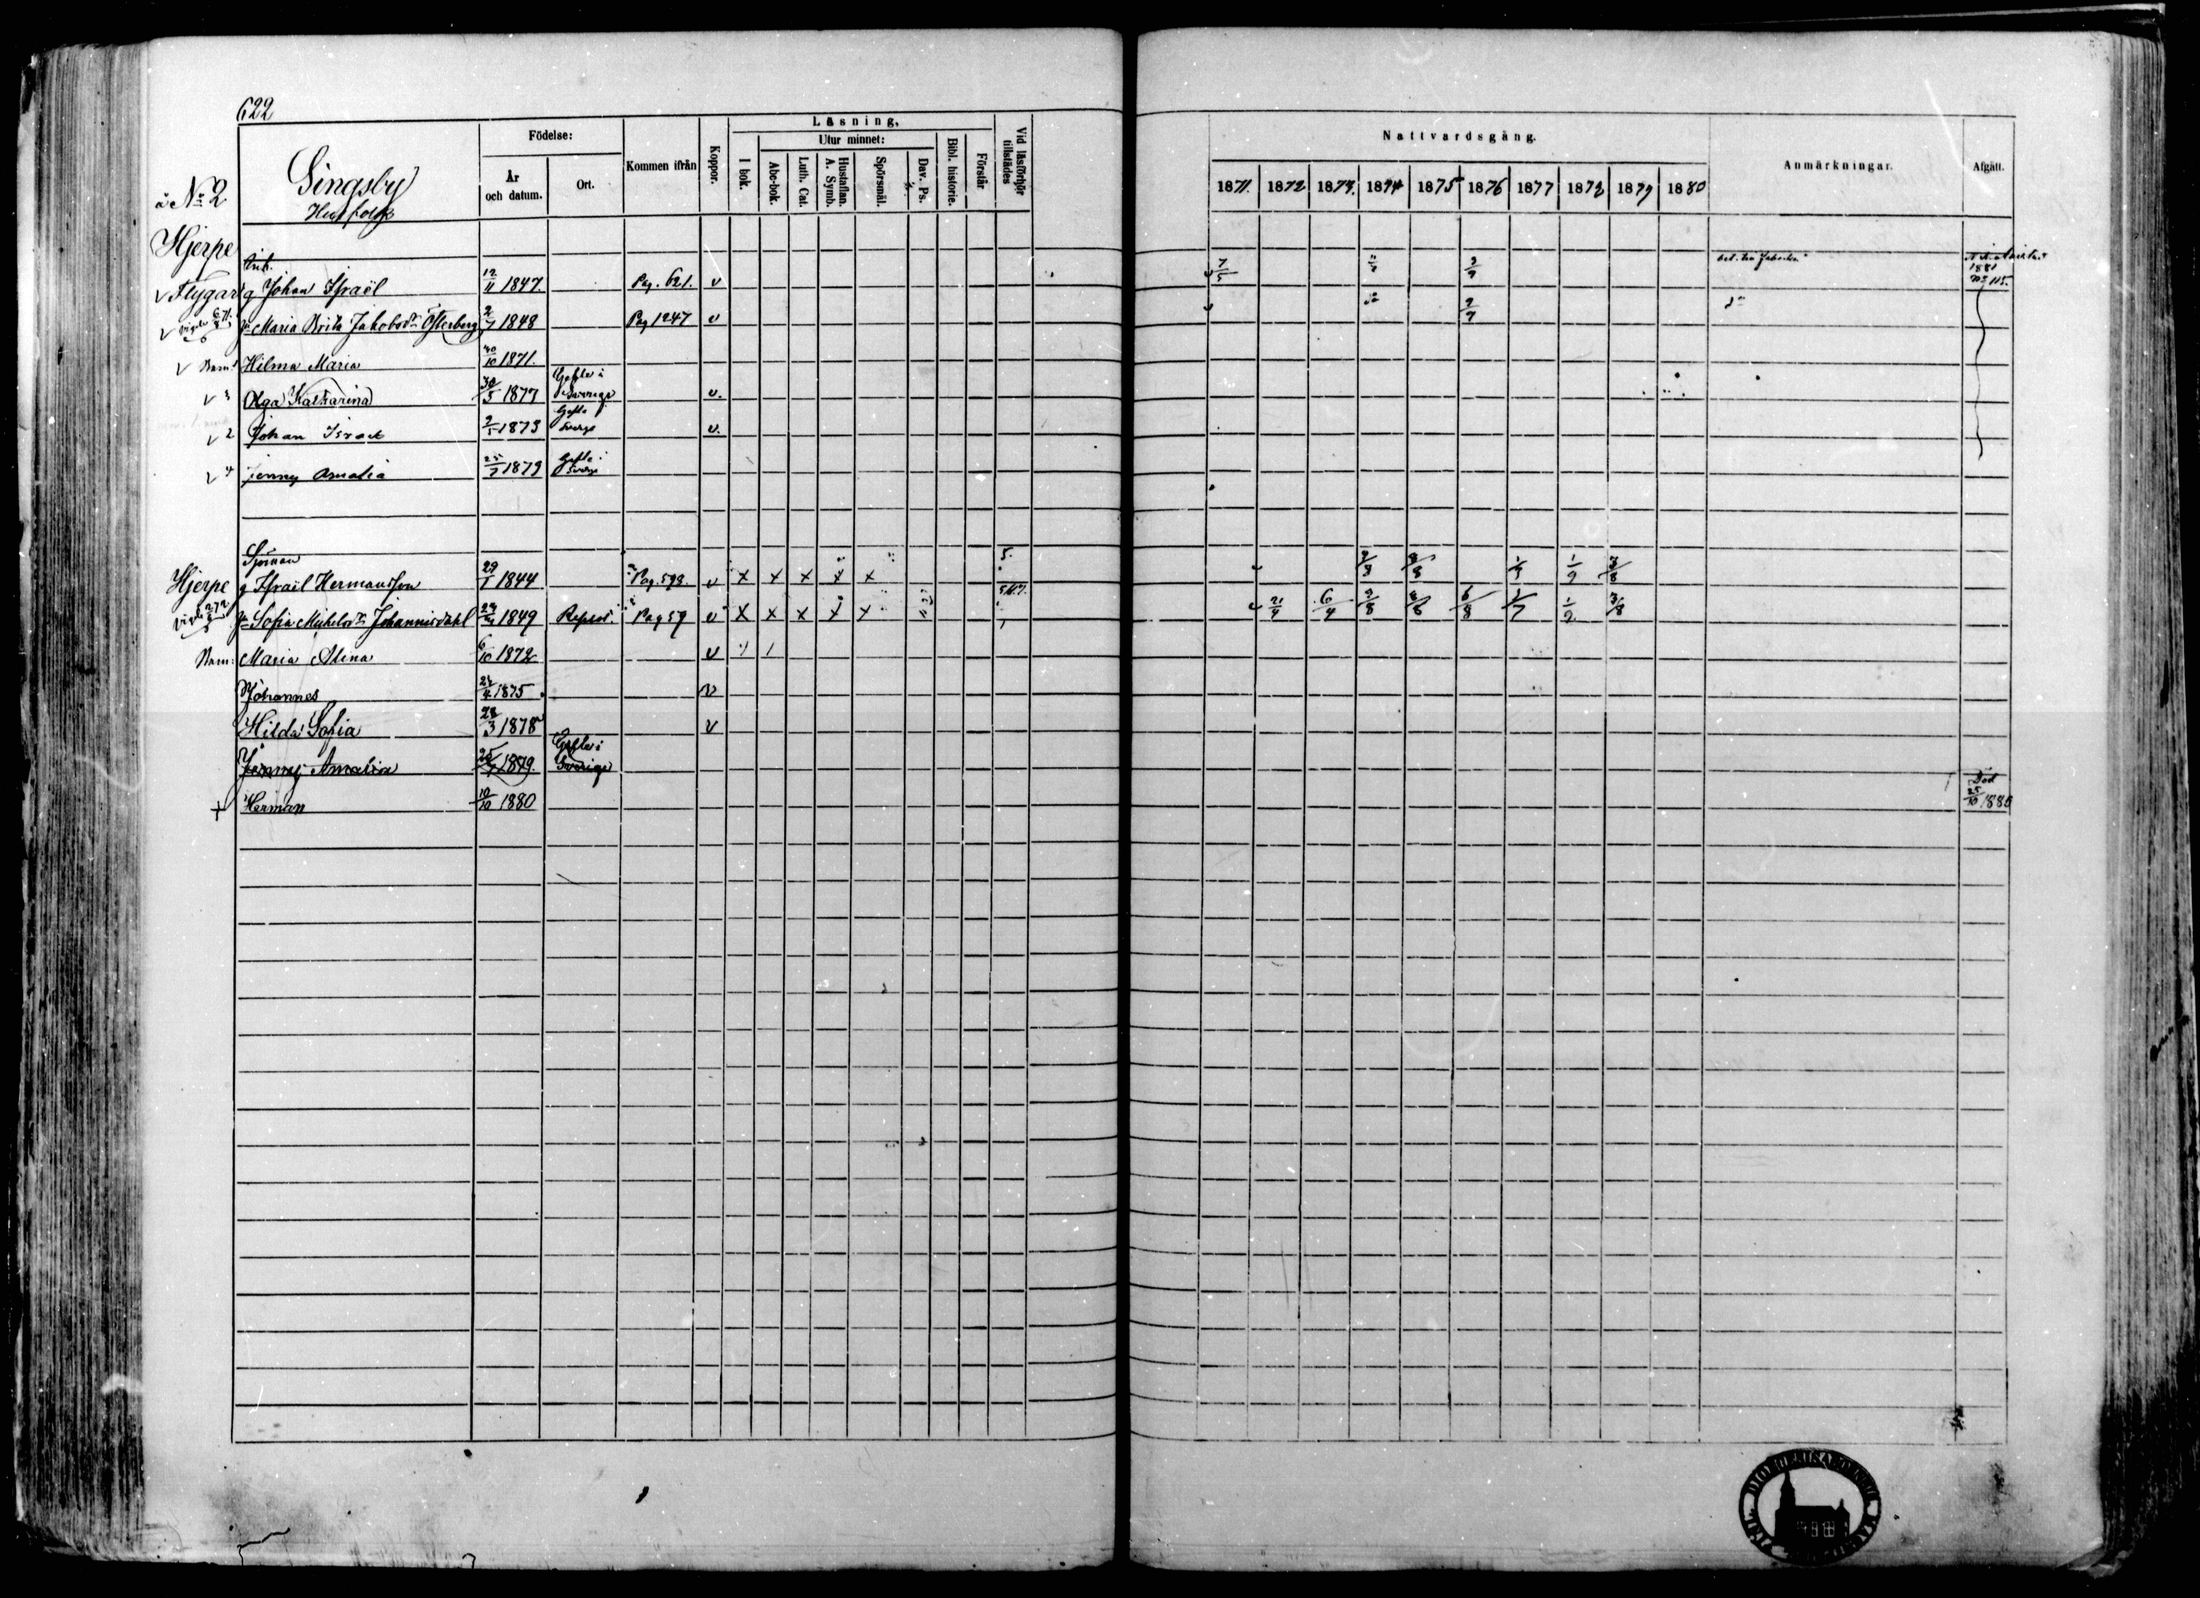 622
Läsning,
Födelse:
Utur minnet:
Nattvardsgång.
Singsby
Kommen ifrån
Koppor.
I bok.
Abc-bok.
Luth. Cat.
Hustaflan. A. Symb.
Spörsmål.
Dav. Ps.
Bibl. historie.
Förstår
Vid läsförhör tillstädes
Anmärkningar.
Afgått.
År och datum.
Ort.
1871. 1872 1873. 1874 1875 1876 1877 1878 1879 1880
å No 2
Husfolk
Hjerpe
Inh.
Flygar g Johan Israël 12/11 1847. Pag. 621. v 7/5
1881
Maria Brita Jakobsdr Österberg 2/7 1848 Pag 1247 v
Barn: Hilma Maria 1871.
3 Olga Katharina 30/5 1877 Gefle i Sverige v.
2 Johan Israel 2/5 1873 Gefle Sverge v.
4 Jenny Amalia 25/7 1879 Gefle i Sverge
Sjöman 5.
Hjerpe g Israël Hermansson 29/1 1844 Pag. 598. v x x x x x 8/8 1/9 3/8
Sofia Mickelsdr Johannisdahl 1849 Replot Pag 59 v x x x x x 21/4 6/4 8/8 6/8 1/7 1/9 3/8
Barn: Maria Alina 6/10 1872 v
Johannes 1875 v
Hilda Sofia 28/3 1878 v
Jenny Amalia 25/7 1879. Gefle i Sverige
+ Herman 10/10 1880 Död 25/10 1880